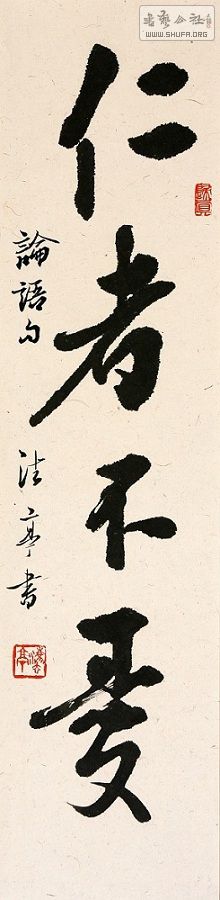 書藝公社
WWW.SHUFA.ORG
仁者不憂
論語句 亭書